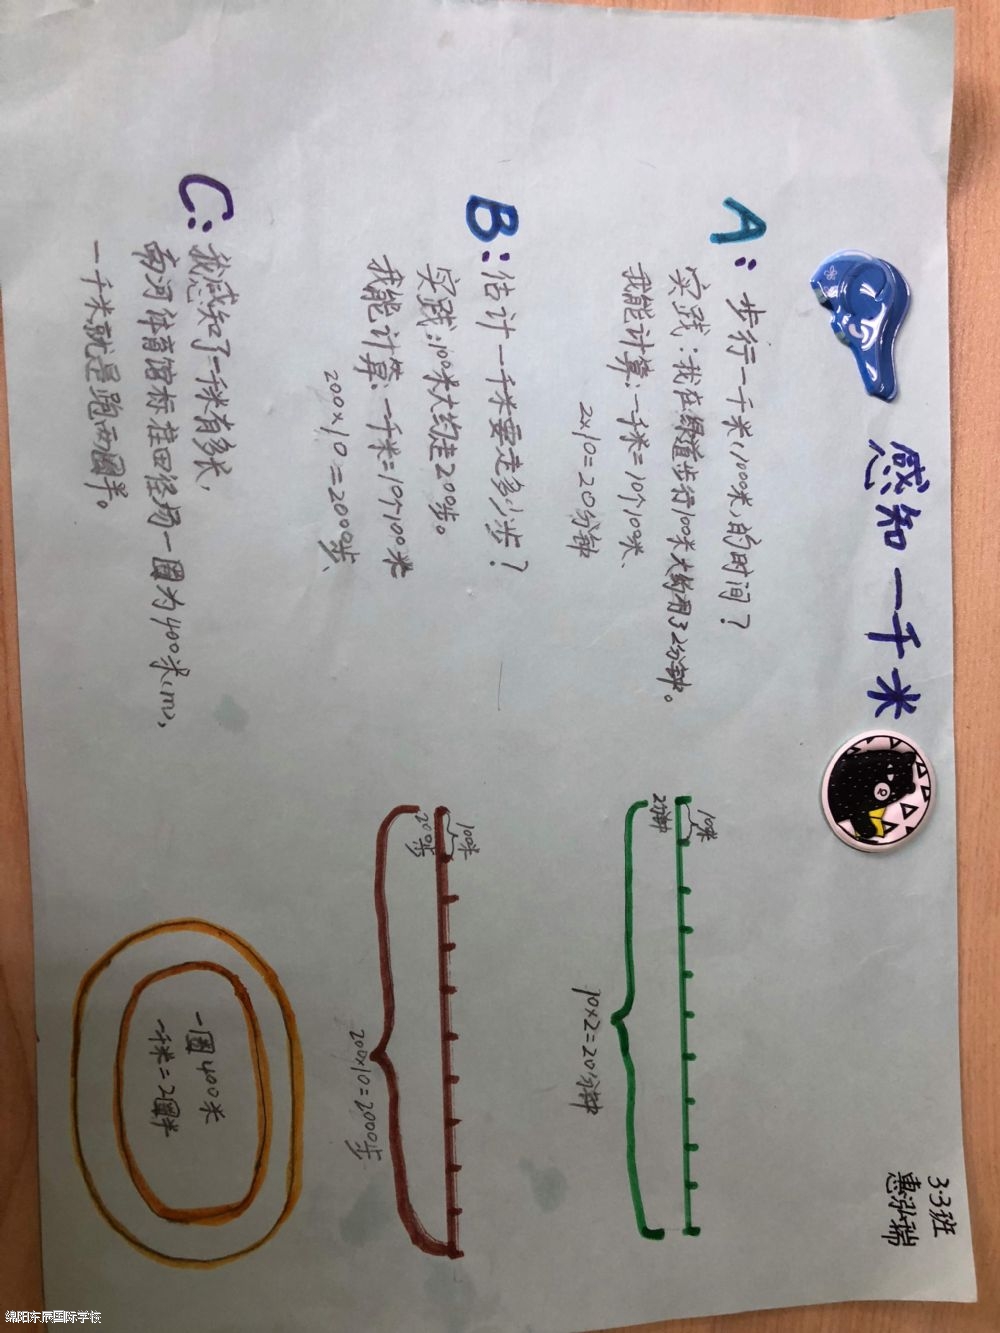 感知一千米
3.3班
惠泓瑞
A：步行一千米（1000米）的时间？
实践：我在绿道步行100米大约用了2分钟。
我能计算：一千米=10个100米、
2×10=20分钟
100米
2分钟
10×2=20分钟
B：估计一千米要走多少步？
实践：100米大约走200步。
我能计算：一千米=10个100米
200×10=2000步、
100米
200步
200×10=2000步
C：我感知了一千米有多长，
南河体育馆标准田径场一圈为400米（m），
一千米就是跑两圈半。
一圈400米
一千米=2圈半
绵阳东辰国际学校